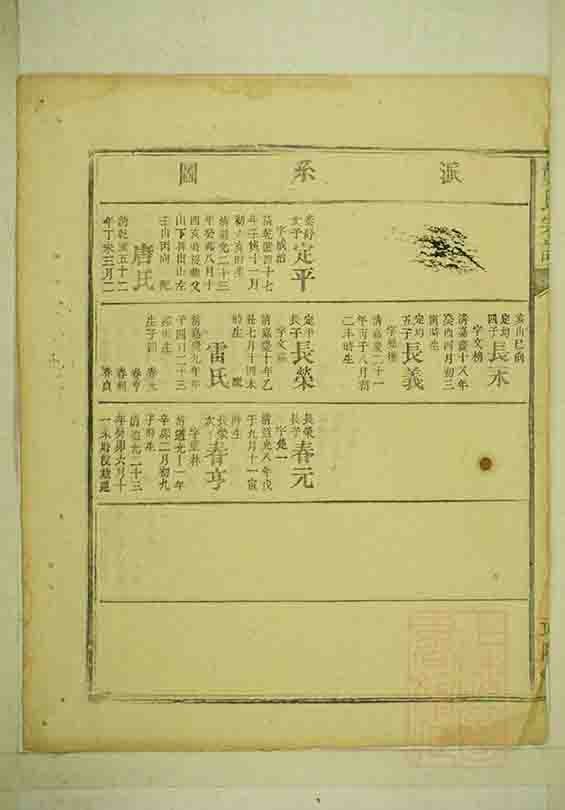 派系圖
委紓
次子
定平
字成治
清乾隆四十七
年壬寅十一月
初
亥時生
清道光二十三
年癸卯八月十
四亥時
父
山下
山左
壬山丙向 配
唐氏
清乾隆五十二
年丁未三月二
亥山巳向
定均
四子
長木
字文榜
清嘉慶十八年
癸酉四月初三
寅時生
定均
五子
長義
清嘉慶二十一
年丙子八月初
二未時生
定平
長子
長榮
字文
清嘉慶十年乙
丑七月十四未
時生 配
雷氏
清嘉慶九年甲
子四月二十三
卯時生
生子四 春元
春亨
春利
春貞
長榮
長子
春元
字楚一
清道光八年戊
子九月十一寅
時生
長榮
次子
春亨
字楚林
清道光十一年
辛卯二月初九
子時生
清道光二十三
年癸卯六月十
一未時